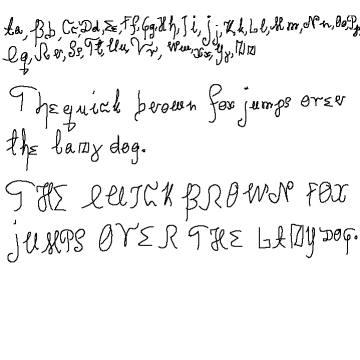 Aa, Bb, Cc, Dd, Ee, Ff, Gg, Hh, Ii, Jj, Kk, Ll, Mm, Nn, Oo, Pp,
Qq, Rr, Ss, Tt, Uu, Vv, Ww, Xx, Yy, Zz
The quick brown fox jumps over
the lazy dog.
THE QUICK BROWN FOX
JUMPS OVER THE LAZY DOG.